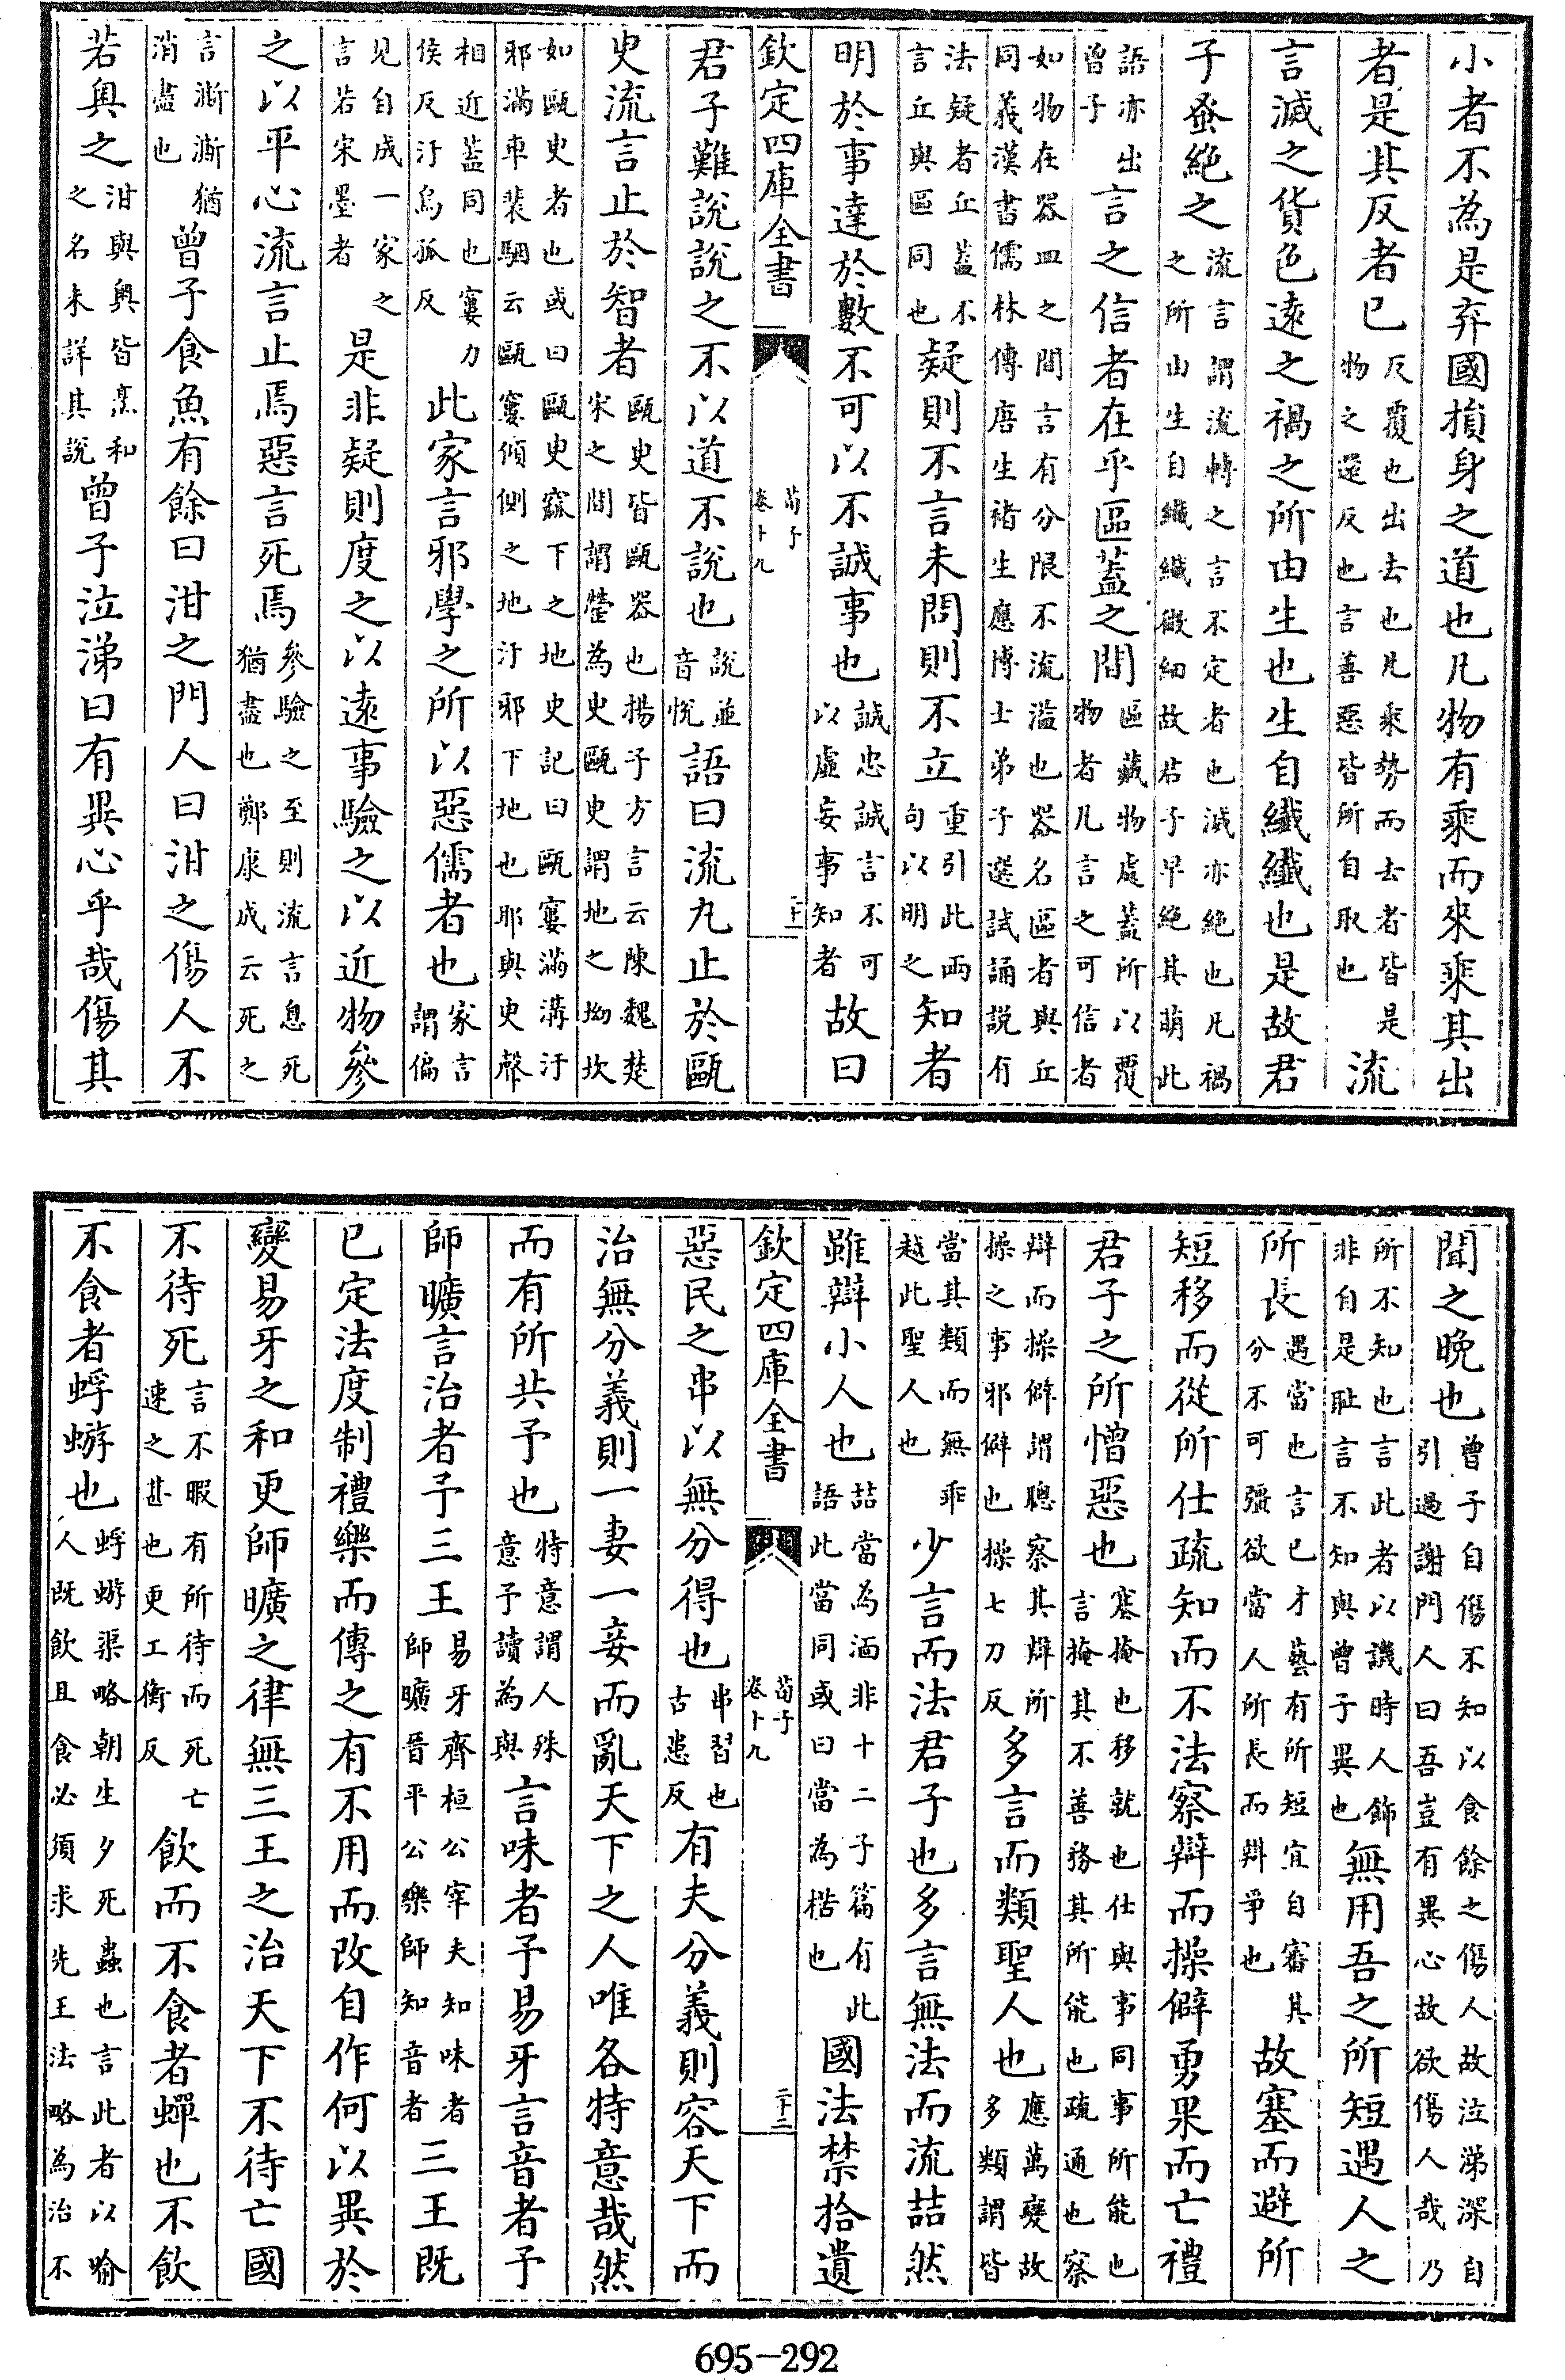 小者不為是弃國損身之道也凡物有乘而來乘其出
者是其反者已反覆也出去也凡乘勢而去者皆是物之還反也言善惡皆所自取也流
言滅之貨色遠之禍之所由生也生自纖纖也是故君
子蚤絶之流言謂流轉之言不定者也滅亦絶也凡禍之所由生自纖纖微細故君子早絶其萌此
語亦出曾子言之信者在乎區蓋之間區藏物處蓋所以覆物者凡言之可信者
如物在器皿之間言有分限不流溢也器名區者與丘同義漢書儒林傳唐生褚生應博士弟子選試誦説有
法疑者丘蓋不言丘與區同也疑則不言未問則不立重引此兩句以明之知者
明於事達於數不可以不誠事也誠忠誠言不可以虛妄事知者故曰
欽定四庫全書
荀子
卷十九
二十一
君子難説説之不以道不説也説並音悦語曰流丸止於甌
臾流言止於智者甌臾皆甌器也揚子方言云陳魏楚宋之間謂罃為臾甌臾謂地之坳坎
如甌臾者也或曰甌臾窳下之地史記曰甌寠滿溝汙邪滿車裴駰云甌寠傾側之地汙邪下地也邪與臾聲
相近蓋同也寠力侯反汙烏孤反此家言邪學之所以惡儒者也家言謂偏
見自成一家之言若宋墨者是非疑則度之以遠事驗之以近物參
之以平心流言止焉惡言死焉參驗之至則流言息死猶盡也鄭康成云死之
言澌澌猶消盡也曾子食魚有餘曰泔之門人曰泔之傷人不
若奥之泔與奥皆烹和之名未詳其説曾子泣涕曰有異心乎哉傷其
聞之晚也曾子自傷不知以食餘之傷人故泣涕深自引過謝門人曰吾豈有異心故欲傷人哉乃
所不知也言此者以譏時人飾非自是耻言不知與曾子異也無用吾之所短遇人之
所長遇當也言已才藝有所短宜自審其分不可彊欲當人所長而辨爭也故塞而避所
短移而從所仕疏知而不法察辯而操僻勇果而亡禮
君子之所憎惡也塞掩也移就也仕與事同事所能也言掩其不善務其所能也疏通也察
辯而操僻謂聰察其辯所操之事邪僻也操七刀反多言而類聖人也應萬變故多類謂皆
當其類而無乖越此聖人也少言而法君子也多言無法而流喆然
雖辯小人也喆當為湎非十二子篇有此語此當同或曰當為楛也國法禁拾遺
欽定四庫全書
荀子
卷十九
二十二
惡民之串以無分得也串習也古患反有夫分義則容天下而
治無分義則一妻一妾而亂天下之人唯各特意哉然
而有所共予也特意謂人殊意予讀為與言味者予易牙言音者予
師曠言治者予三王易牙齊桓公宰夫知味者師曠晉平公樂師知音者三王既
已定法度制禮樂而傳之有不用而改自作何以異於
變易牙之和更師曠之律無三王之治天下不待亡國
不待死言不暇有所待而死亡速之甚也更工衡反飲而不食者蟬也不飲
不食者蜉蝣也蜉蝣渠略朝生夕死蟲也言此者以喻人既飲且食必須求先王法略為治不
695-292